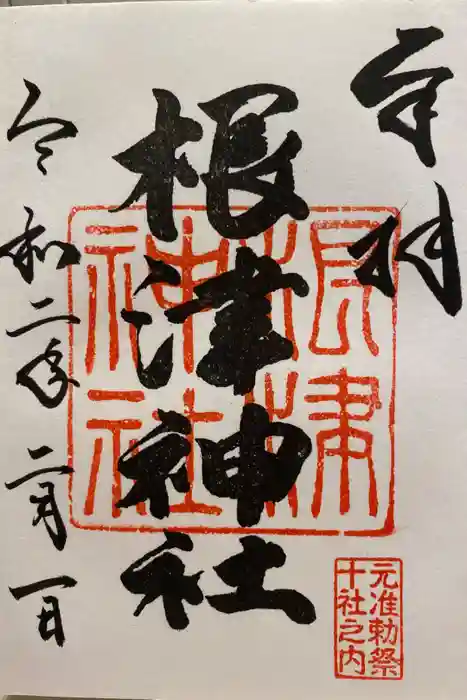 奉拝
根津神社
根津神社
元准勅祭
十社之内
令和二年二月一日